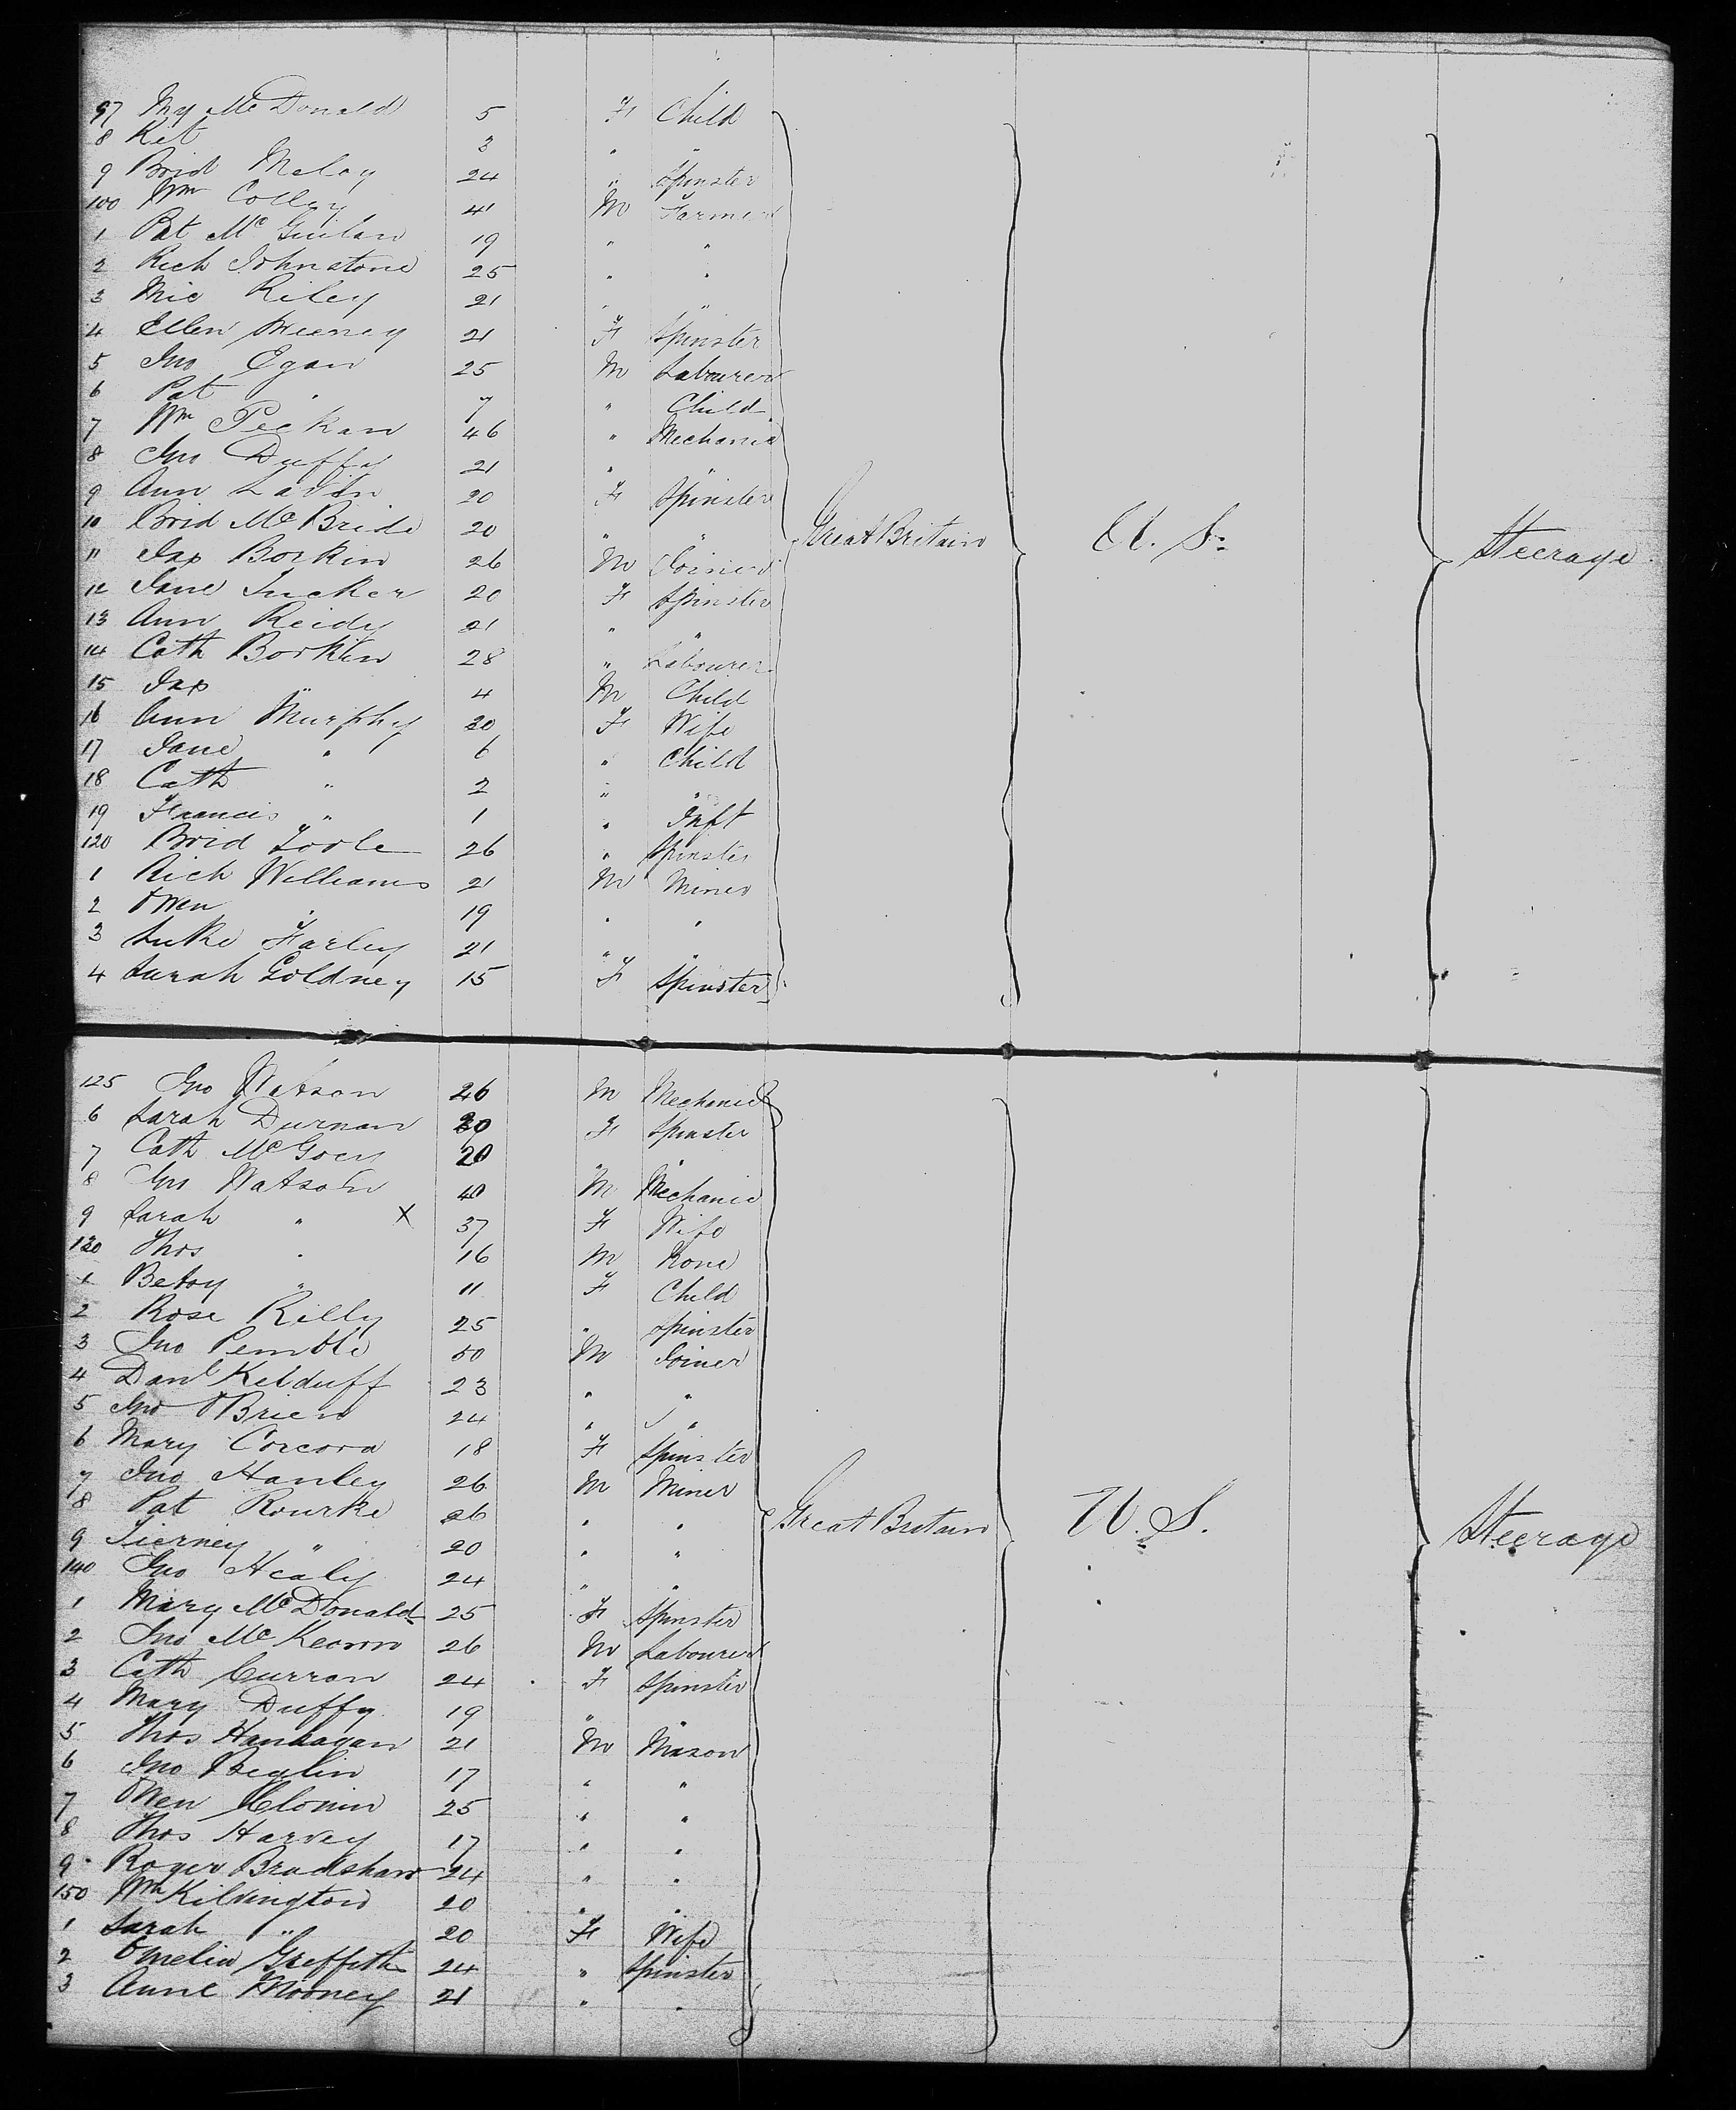 97 My McDonald 5 F Child
8 Kit 3 " "
9 Brid Meloy 24 " Spinster
100 Wm Colley 41 M Farmer
1 Pat Mc Guilan 19 " "
2 Rich Johnstone 25 " "
3 Mic Riley 21 " "
4 Ellen Meeney 21 F Spinster
5 Jno Egan 25 M Labourer
6 Pat " 7 " Child
7 Wm Peckan 46 " Mechanic
8 Jno Duffy 21 " "
9 Ann Lavin 20 F Spinster
10 Brid McBride 20 " "
11 Jas Borkin 26 M Joiner
12 Jane Tucker 20 F Spinster
13 Ann Reidy 21 " "
14 Cath Borkin 28 " Labourer
15 Jas " 4 M Child
16 Ann Murphy 30 F Wife
17 Jane " 6 " Child
18 Cath " 2 " "
19 Francis " 1 " Inft
120 Brid Toole 26 " Spinster
1 Rich Williams 21 M Miner
2 Owen " 19 " "
3 Luke Farley 21 " "
4 Sarah Goldney 15 F Spinster
Great Britain U. S. Steerage
125 Jno Watson 26 M Mechanic
6 Sarah Durnan 30 F Spinster
7 Cath McGoey 20 " "
8 Jno Watson 40 M Mechanic
9 Sarah " X 37 F Wife
130 Thos " 16 M None
1 Betsy " 11 F Child
2 Rose Rilly 25 " Spinster
3 Jno Pemble 50 M Joiner
4 Danl Kilduff 23 " "
5 Jno OBrien 24 " "
6 Mary Corcora 18 F Spinster
7 Jno Hanley 26 M Miner
8 Pat Rourke 26 " "
9 Tierney " 20 " "
140 Jno Healy 24 " "
1 Mary McDonald 25 F Spinster
2 Jno McKeown 26 M Labourer
3 Cath Curran 24 F Spinster
4 Mary Duffy 19 " "
5 Thos Hanhagan 21 M Mason
6 Jno Beglin 17 " "
7 Owen Clonin 25 " "
8 Thos Harvey 17 " "
9 Roger Bradshaw 24 " "
150 Wm Kilvington 20 " "
1 Sarah " 20 F Wife
2 Omelia Greffith 24 " Spinster
3 Anne Mooney 21 " "
Great Britain U. S. Steerage